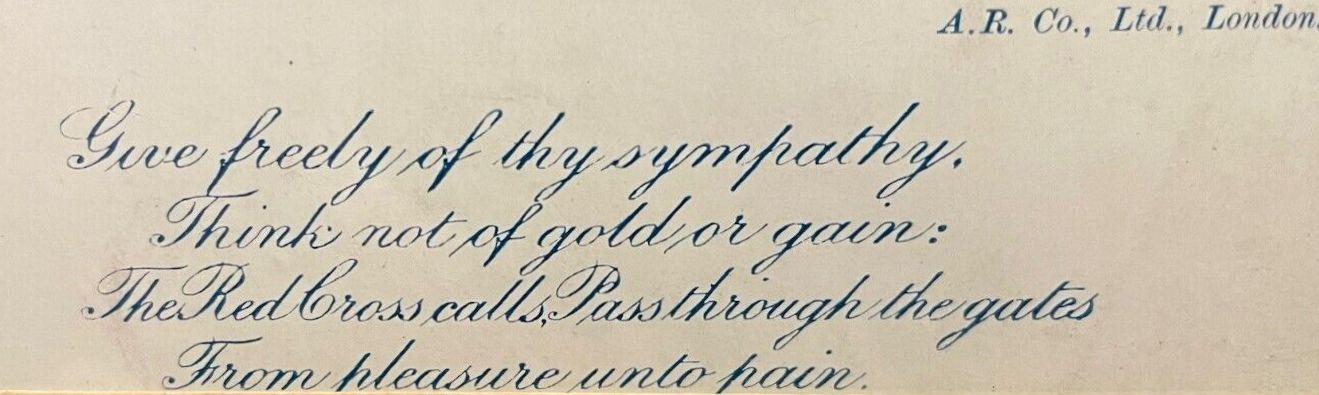 A.R. Co., Ltd., London.
Give freely of thy sympathy.
Think not of gold or gain:
The Red Cross calls, Pass through the gates
From pleasure unto pain.